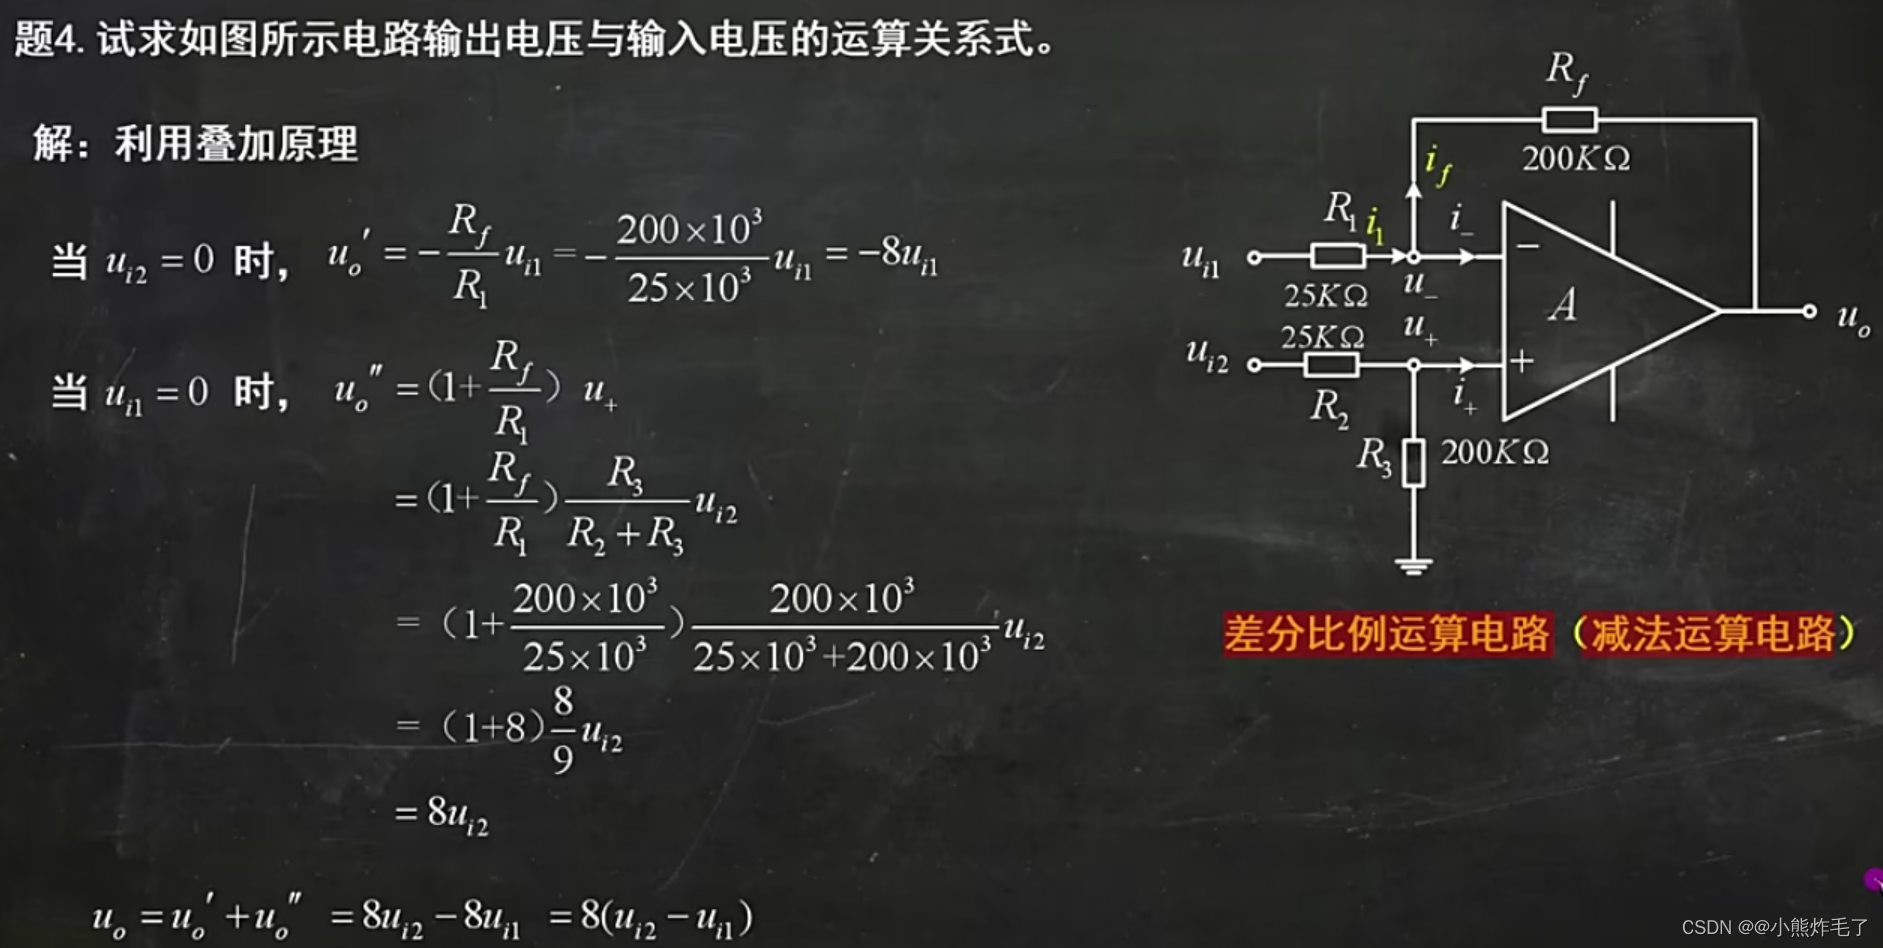 题4. 试求如图所示电路输出电压与输入电压的运算关系式。
解：利用叠加原理
当 u_{i2} = 0 时， u_o' = -\frac{R_f}{R_1} u_{i1} = -\frac{200×10^3}{25×10^3} u_{i1} = -8u_{i1}
当 u_{i1} = 0 时， u_o'' = (1+\frac{R_f}{R_1}) u_+
= (1+\frac{R_f}{R_1}) \frac{R_3}{R_2+R_3} u_{i2}
= (1+\frac{200×10^3}{25×10^3}) \frac{200×10^3}{25×10^3+200×10^3} u_{i2}
= (1+8) \frac{8}{9} u_{i2}
= 8u_{i2}
u_o = u_o' + u_o'' = 8u_{i2} - 8u_{i1} = 8(u_{i2} - u_{i1})
R_f
200KΩ
i_f
R_1 i_1 i_-
u_{i1}
25KΩ u_-
−
A
u_o
25KΩ u_+
u_{i2}
+
R_2 i_+
R_3 200KΩ
差分比例运算电路（减法运算电路）
CSDN @@小熊炸毛了